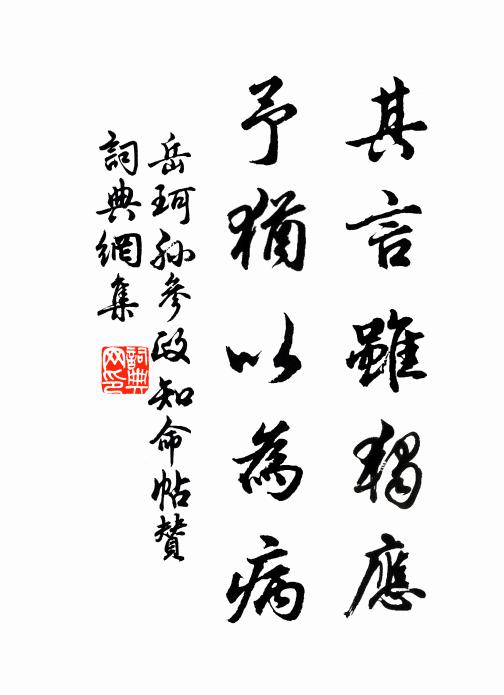 其言雖獨應
予猶以為病
岳珂孫參政知命帖贊
詞典網集
詞典
网印